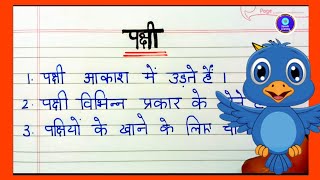 Page
पक्षी
1. पक्षी आकाश में उड़ते हैं ।
2. पक्षी विभिन्न प्रकार के
3. पक्षियों के खाने के लिए